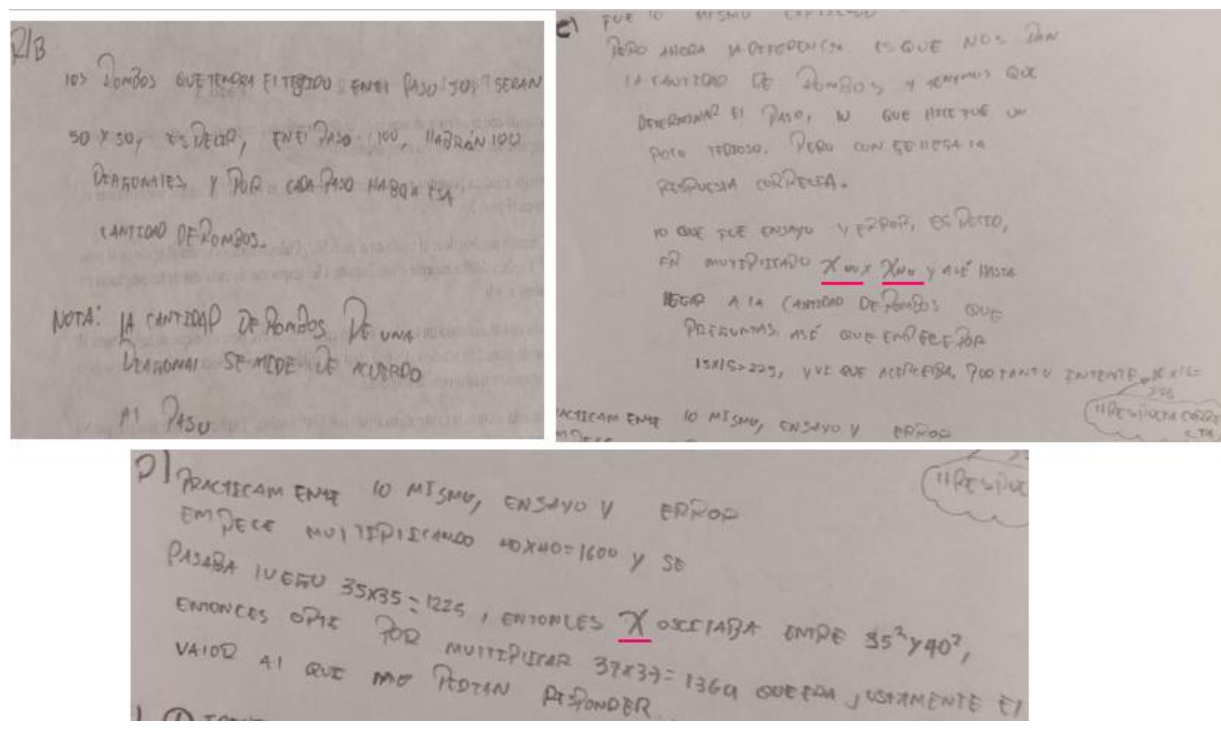 R/B
LOS ROMBOS QUE TENDRA El TEJIDO EN El PASO "50" SERAN
50 x 50, ES DECIR, EN El PASO 100, HABRÁN 100
DIAGONALES Y POR CADA PASO HABRA ESA
CANTIDAD DE ROMBOS.
NOTA: LA CANTIDAD DE ROMBOS DE UNA
DIAGONAl SE MIDE DE ACUERDO
Al PASO
C) FUE lO MISMO
PERO AHORA LA DIFERENCIA ES QUE NOS DAN
LA CANTIDAD DE ROMBOS Y TENEMOS QUE
DETERMINAR El PASO, lO QUE HICE FUE UN
POCO TEDIOSO. PERO CON SE LLEGA LA
RESPUESTA CORRECTA.
lO QUE FUE ENSAYO Y ERROR, ES DECIR,
MULTIPLICADO X Y ASÍ HASTA
LLEGAR A LA CANTIDAD DE ROMBOS QUE
PREGUNTAS, ASÍ QUE EMPECE POR
15X15=225, Y VI QUE POR TANTO INTENTE 16 x 16=
256
RESPUESTA CORRE
CTA
PRACTICAMENTE lO MISMO, ENSAYO Y ERROR
D) PRACTICAMENTE lO MISMO, ENSAYO Y ERROR
EMPECE MULTIPLICANDO 40X40=1600 Y SE
PASABA LUEGO 35X35=1225, ENTONCES X OSCILABA ENTRE 35² Y 40²,
ENTONCES OPTE POR MULTIPLICAR 37X37=1369 QUE ERA JUSTAMENTE El
VALOR Al QUE ME PEDIAN RESPONDER